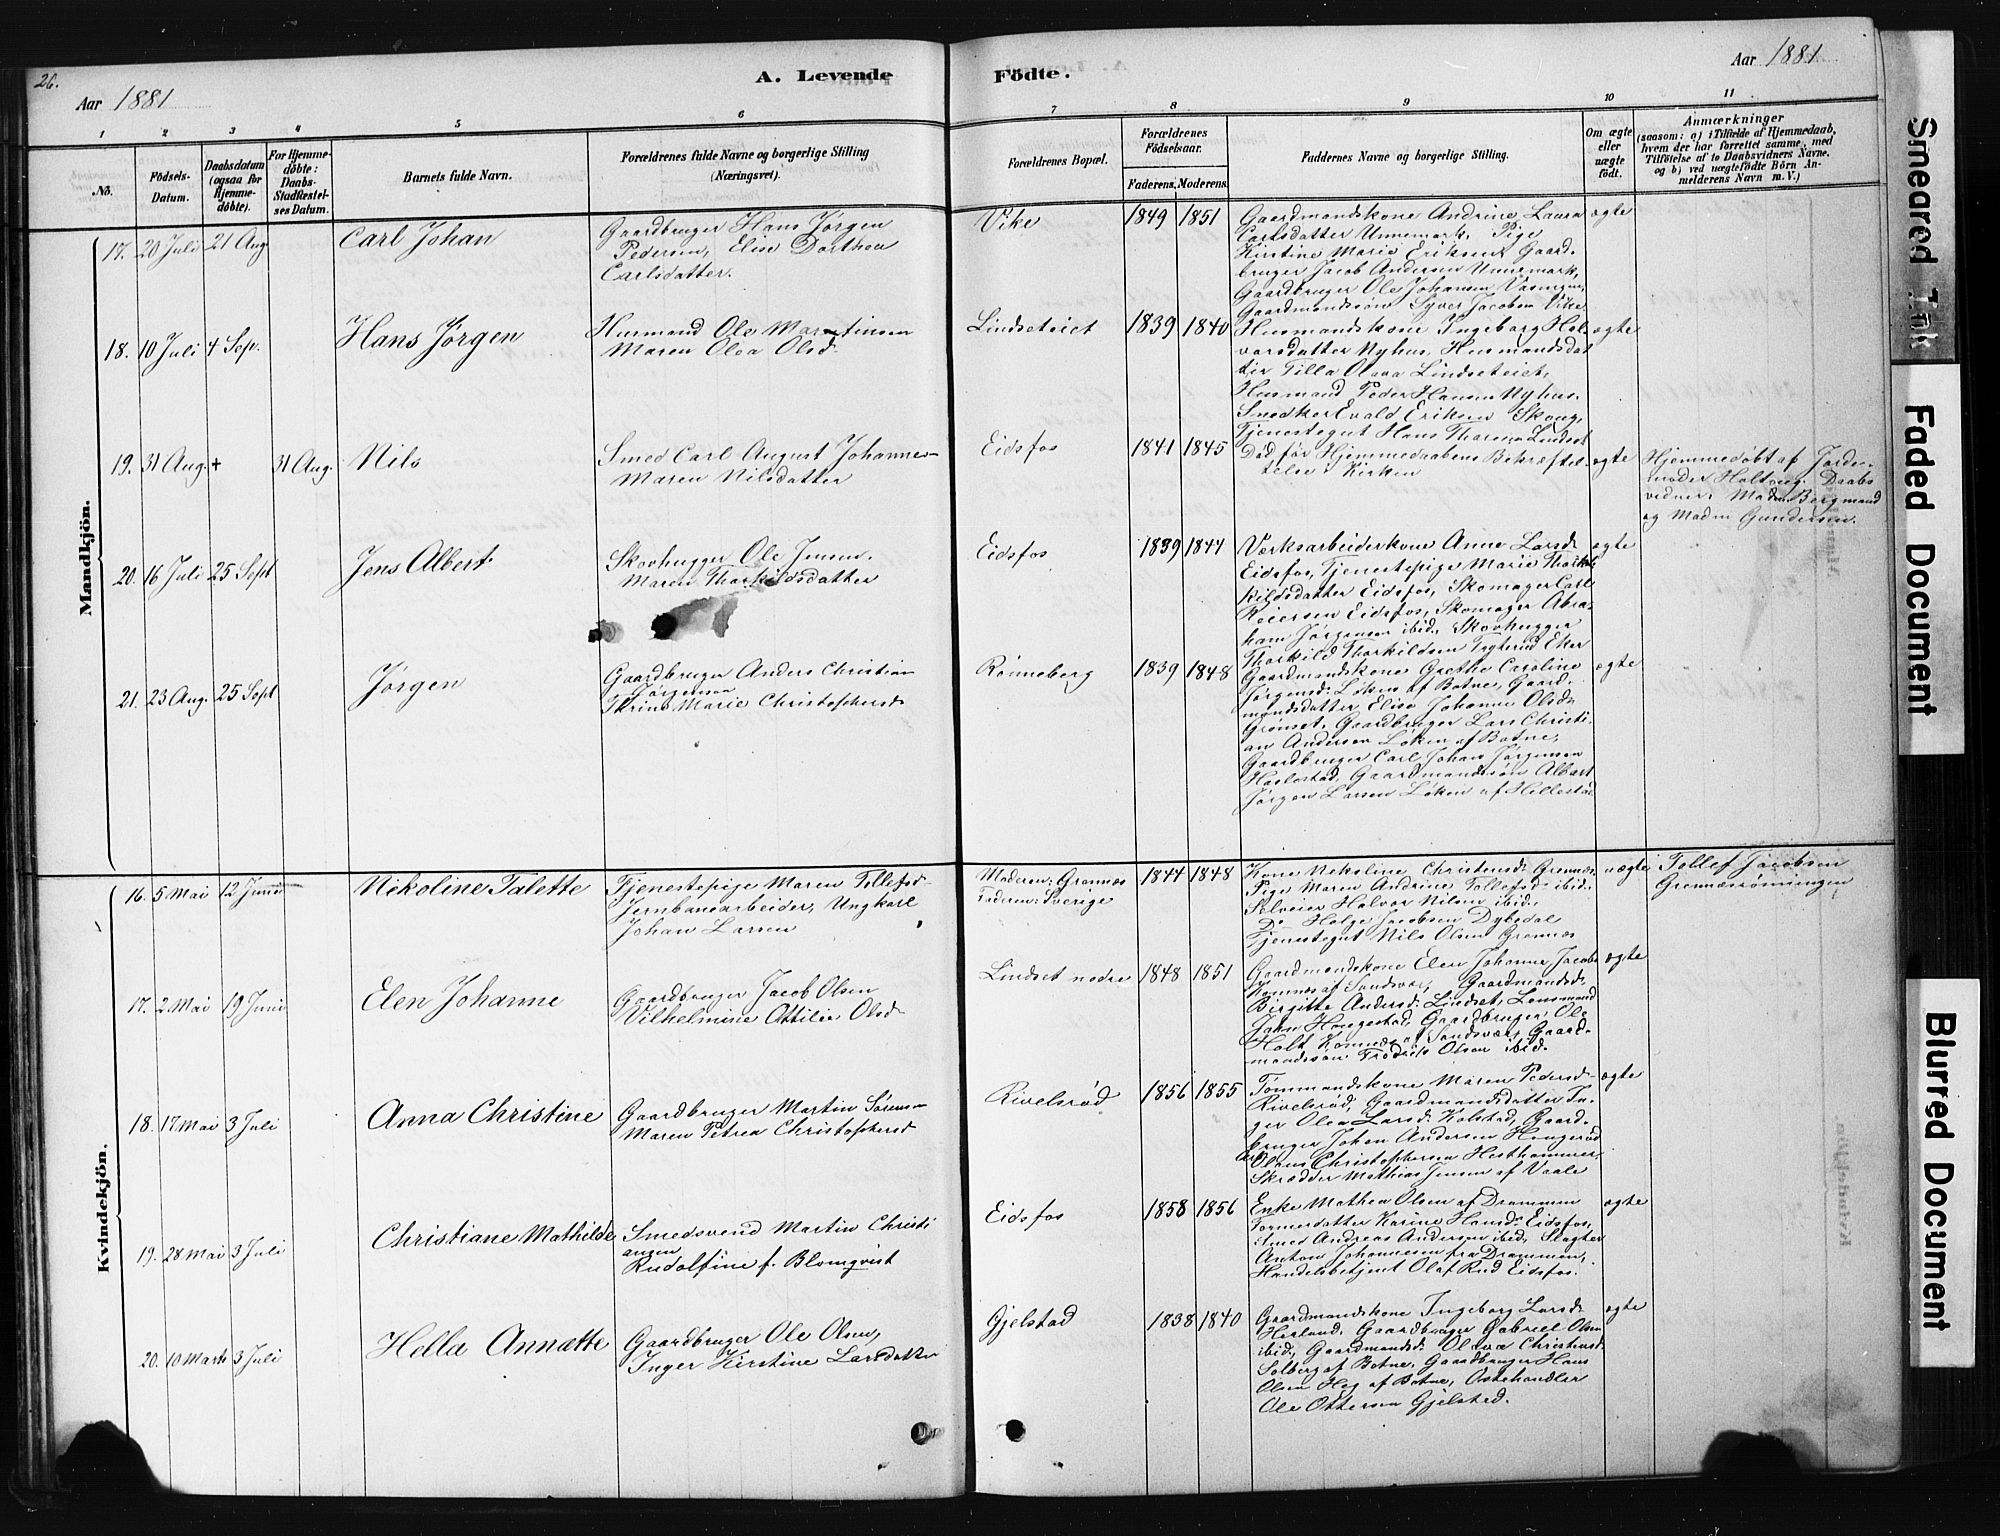 26.
Aar 1881
A. Levende
Födte.
Aar 1881
1 2 3 4 5 6 7 8 9 10 11
No.
Födsels-
Datum.
Daabsdatum
(ogsaa for
Hjemme-
döbte).
For Hjemme-
döbte:
Daabs-
Stadfæstel-
ses Datum.
Barnets fulde Navn.
Forældrenes fulde Navne og borgerlige Stilling
(Næringsvei).
Forældrenes Bopæl.
Forældrenes
Födselsaar.
Faderens. Moderens.
Faddernes Navne og borgerlige Stilling.
Om ægte
eller
uægte
födt.
Anmærkninger
(saasom: a) i Tilfælde af Hjemmedaab,
hvem der har forrettet samme, med
Tilföielse af to Daabsvidners Navne,
og b) ved uægtefödte Börn An-
melderens Navn m. V.)
Mandkjön.
17. 20 Juli 21 Aug
Carl Johan
Gaardbruger Hans Jørgen
Pedersen, Elise Dorthea
Carlsdatter.
Vike
1849 1851
Gaardmandskone Andrine Laura
Carlsdatter Unnemark, Pige
Kirstine Marie Eriksen Gaard-
bruger Jacob Andersen Unnemark,
Gaardbruger Ole Johansen
Gaardmandssøn Syver Jacobsen Vike
ægte
18. 10 Juli 4 Sep.
Hans Jørgen
Husmand Ole Martinsen
Maren Olea Olsd.
Lindseteiet
1839 1840
Husmandskone Ingeborg Hal-
vorsdatter Nyhus, Husmandsdat
ter Tilla Olava Lindseteiet,
Husmand Peder Hansen Nyhus.
Smed Evald Eriksen Skoug,
Tjenestegut Hans Lindset
ægte
19. 31 Aug. + 31 Aug.
Nils
Smed Carl August Johannes-
Maren Nilsdatter
Eidsfos
1841 1845
Død før Hjemmedaabens Bekræftel-
telse i Kirken
ægte
Hjemmedøbt af Jorde-
moder Holtung. Daabs
vidner: Madm Bergmand
og Madm Gundersen.
20. 16 Juli 25 Sept
Jens Albert
Skovhugger Ole Jensen.
Maren Thorkildsdatter
Eidsfos
1839 1844
Værksarbeiderkone Anne Larsd.
Eidsfos, Tjenestepige Marie Thor
kildsdatter Eidsfos, Skomager Carl
Reiersen Eidsfos, Skomager Abra-
ham Jørgensen ibid. Skovhugger
Thorkild Thorkildsen Eker
ægte
21. 23 Aug. 25 Sept
Jørgen
Gaardbruger Anders Christian
Jørgensen
Trine Marie Christophersd.
Rønneberg
1839 1848
Gaardmandskone Grethe Caroline
Jørgensd. Løken af Botne, Gaard-
mandsdatter Elise Johanne Olsd.
Grønset, Gaardbruger Lars Christi-
an Andersen Løken af Botne,
Gaardbruger Carl Johan Jørgensen
Haslestad, Gaardmandssøn Albert
Jørgen Larsen Løken af Hillestad
ægte
Kvindekjön.
16. 5 Mai 12 Juni
Nikoline Talette
Tjenestepige Maren Tollefsd.
Jernbanearbeider, Ungkarl
Johan Larsen
Moderen: Grennes
Faderen: Sverige
1844 1848
Kone Nikoline Christensd. Grennes
Pige Maren Andrine Tollefsd. ibid.
Selveier Halvor Nilsen ibid.
Do Helge Jacobsen Dybedal
Tjenestegut Nils Olsen Grennes
uægte
Tollef Jacobsen
Grennesrønningen
17. 2 Mai 19 Juni
Elen Johanne
Gaardbruger Jacob Olsen
Vilhelmine Attilie Olsd.
Lindset nedre
1848 1851
Gaardmandskone Elen Johanne Jacobs
Komnes af Sandsvær, Gaardmandsd.
Birgitte Andersd. Lindset, Lensmand
John Haugestad, Gaardbruger Ole
Holt Komnes af Sandsvær, Gaard-
mandssøn Fredrik Olsen ibid.
ægte
18. 17 Mai 3 Juli
Anna Christine
Gaardbruger Martin Sørensen
Maren Petrea Christophersd
Rivelsrød
1856 1855
Tømmandskone Maren Pedersd.
Rivelsrød, Gaardmandsdatter In-
ger Olea Larsd. Kolstad, Gaard-
bruger Johan Andersen Haugerød
Olaus Christophersen Hesthammer,
Skrædder Mathias Jensen af Vaale
ægte
19. 28 Mai 3 Juli
Christiane Mathilde
Smedsvend Martin Christi
ansen
Rudolfine f. Blomqvist
Eidsfos
1858 1856
Enke Mathea Olsen af Drammen
Formerdatter Karine Hansd. Eidsfos,
Smed Andreas Andersen ibid, Slagter
Anton Johannesen fra Drammen,
Handelsbetjent Olaf Rud Eidsfos.
ægte
20. 10 Marts 3 Juli
Hella Annætte
Gaardbruger Ole Olsen,
Inger Kirstine Larsdatter
Gjelstad
1838 1840
Gaardmandskone Ingeborg Larsd.
Herland, Gaardbruger Gabriel Olsen
ibid., Gaardmandsd. Olava Christensd.
Solberg af Botne, Gaardbruger Hans
Olsen Heg af Botne, Ostehandler
Ole Ottersen Gjelstad.
ægte
Smeared Ink
Faded Document
Blurred Document